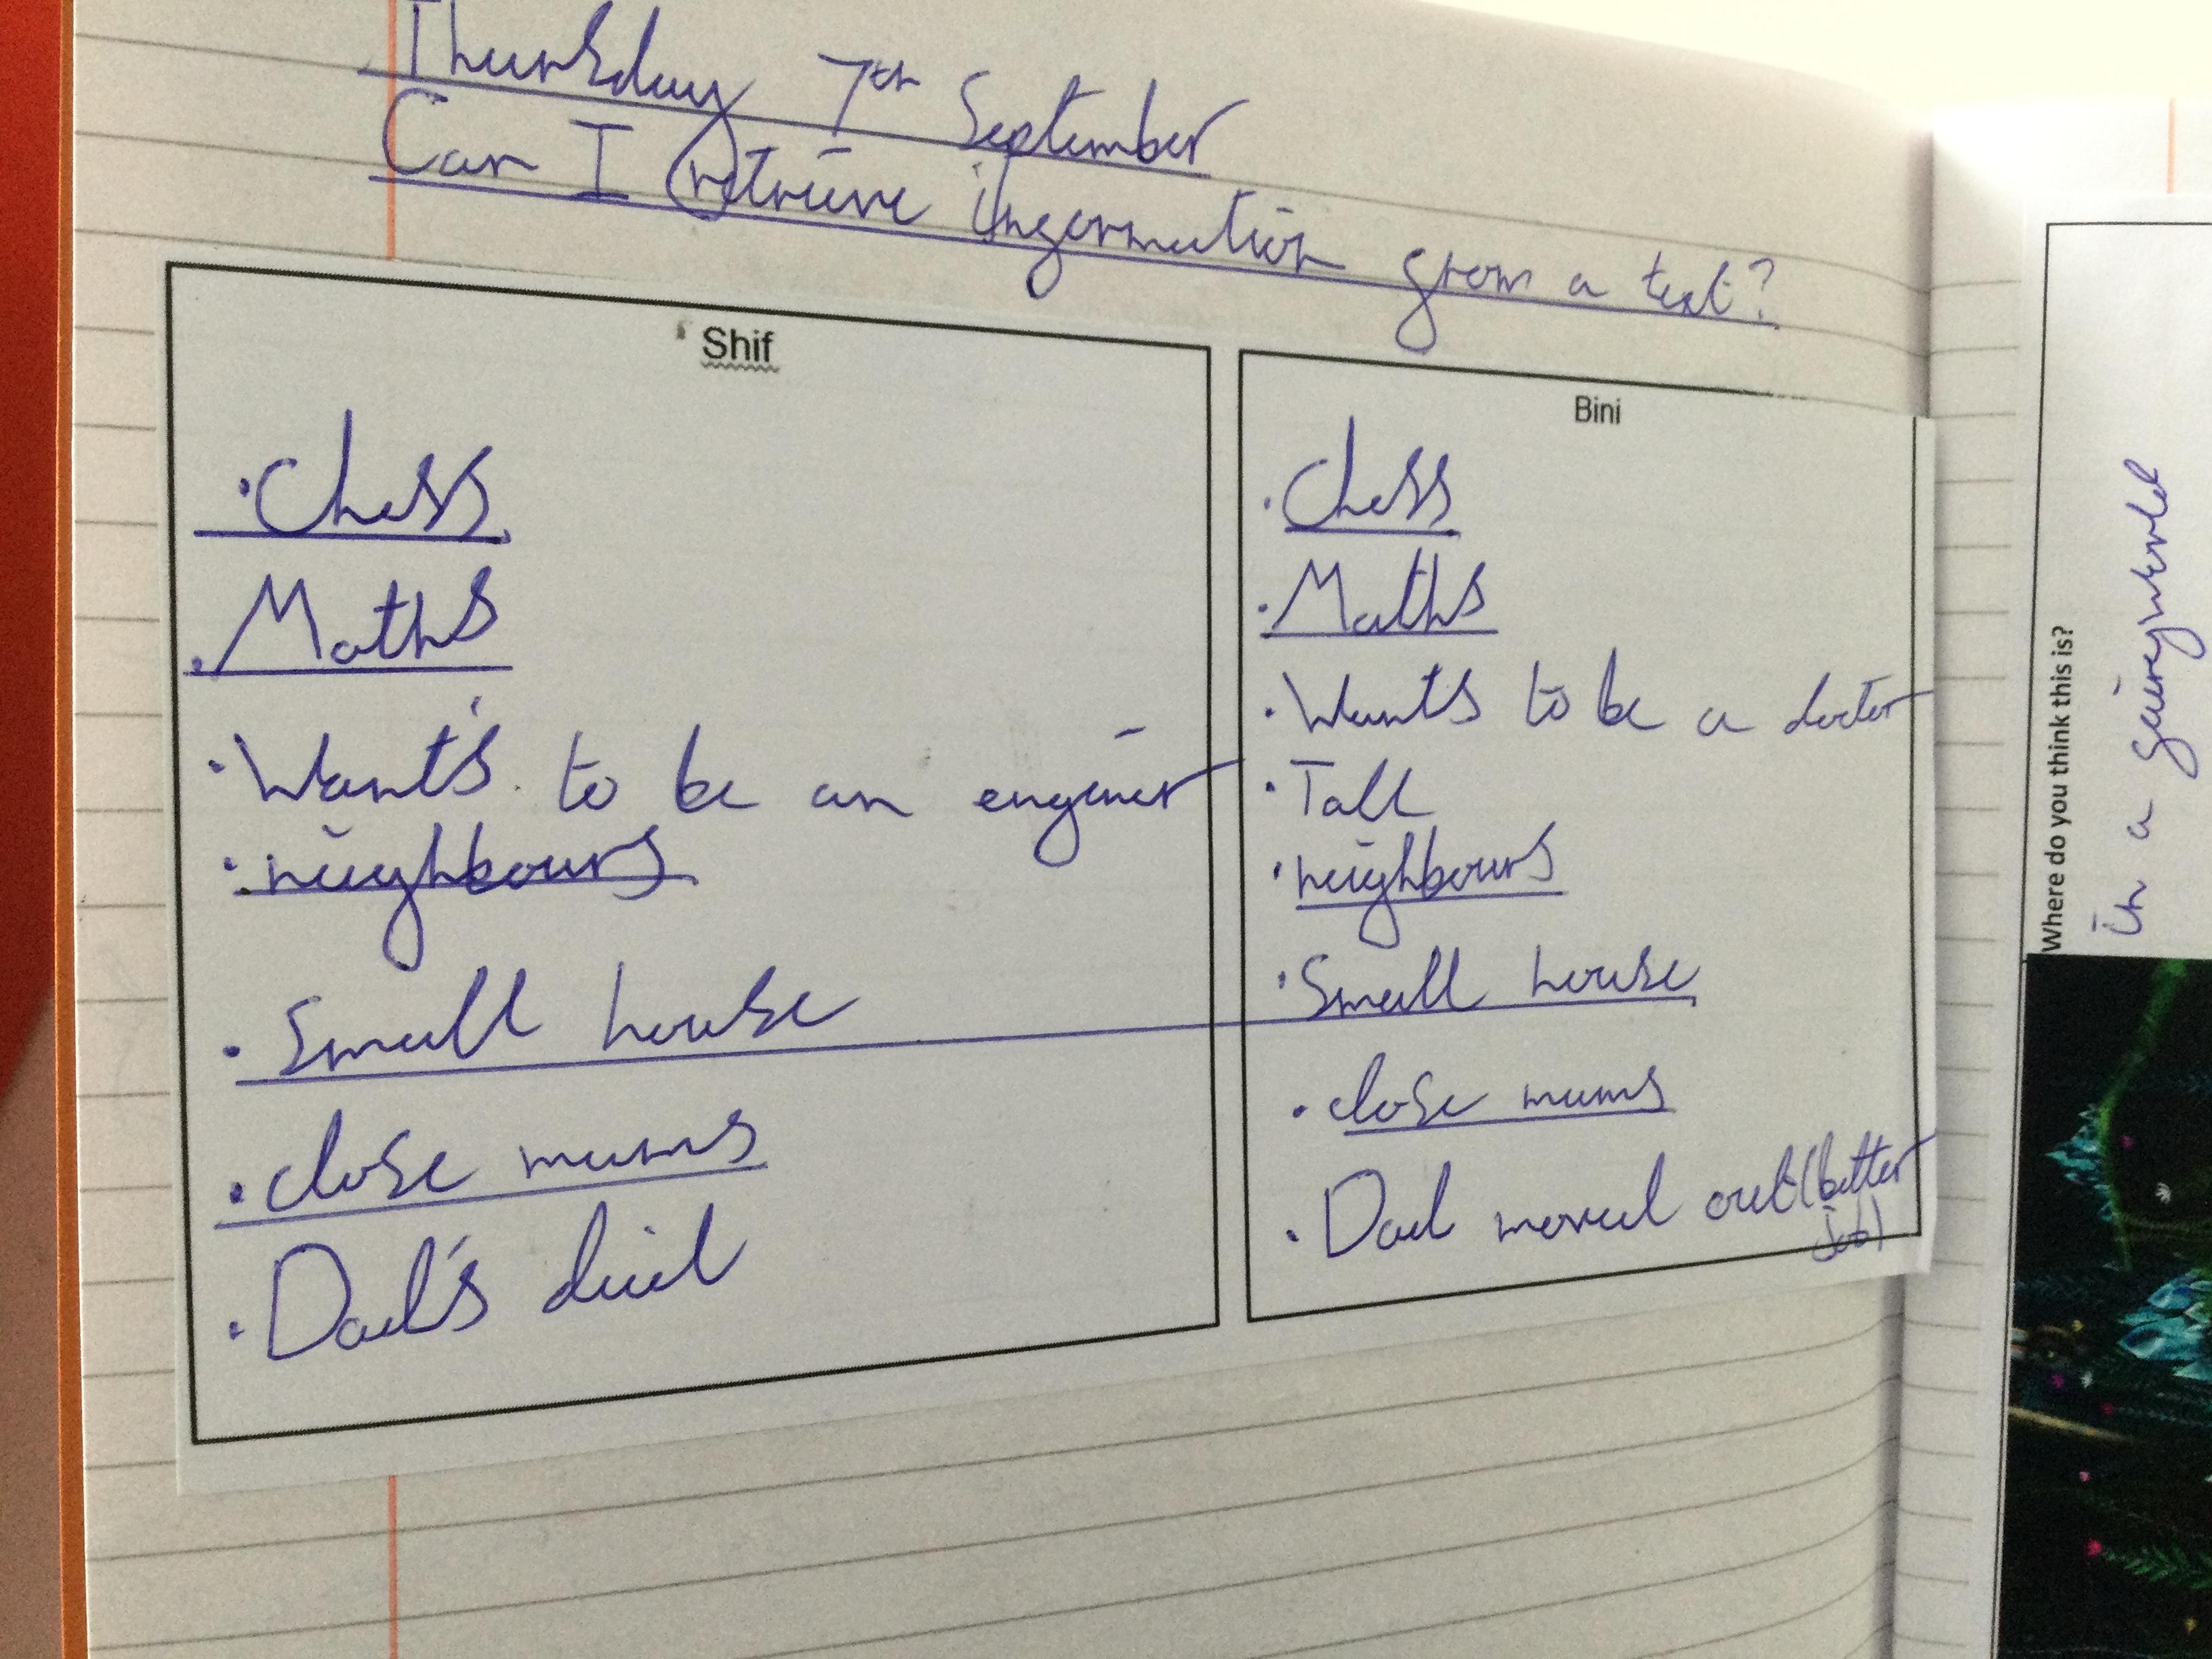 Thursday 7th September
Can I retrieve information from a text?
Shif
· Chess
· Maths
· Want's to be an enginer
· neighbours
· Small house
· close mums
· Dad's died
Bini
· Chess
· Maths
· Wants to be a doctor
· Tall
· neighbours
· Small house
· close mums
· Dad moved out (better
job)
Where do you think this is?
in a